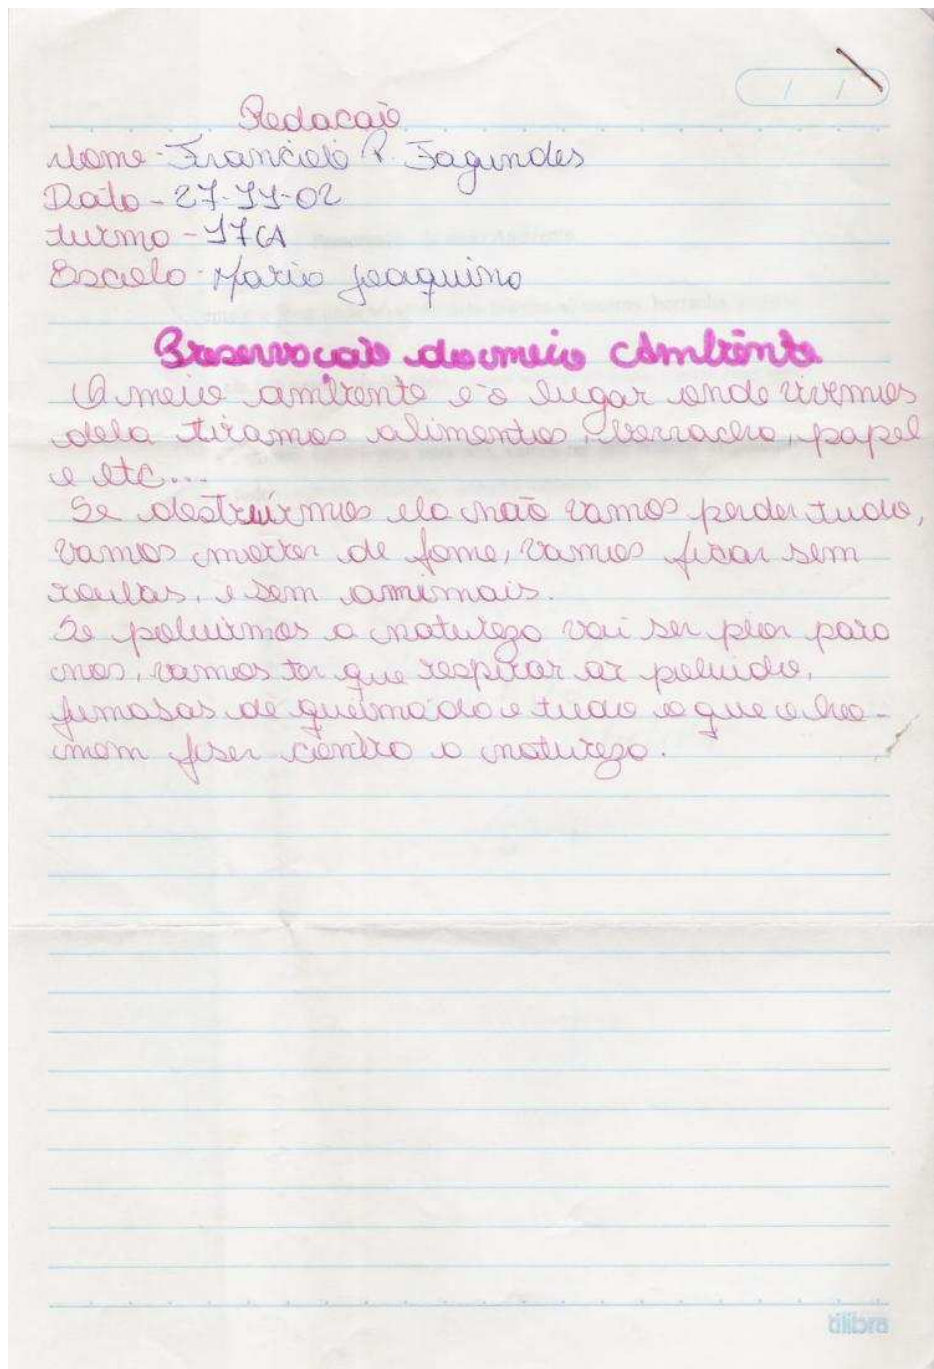 Redacaõ
Nome - Franciele P. Fagundes
Data - 27-11-02
turma - 17CA
Escola - Maria Joaquina
Preservacaõ do meio Ambiênte
O meio ambiente é o lugar onde vivemos
dela tiramos alimentos, borracha, papel
e etc...
Se destruirmos ela não vamos perder tudo,
vamos morrer de fome, vamos ficar sem
roupas, e sem animais.
Se poluirmos a natureza vai ser pior para
nos, vamos ter que respirar ar poluido,
fumasas de queimada e tudo o que o ho-
mem fiser contra a natureza.
tilibra